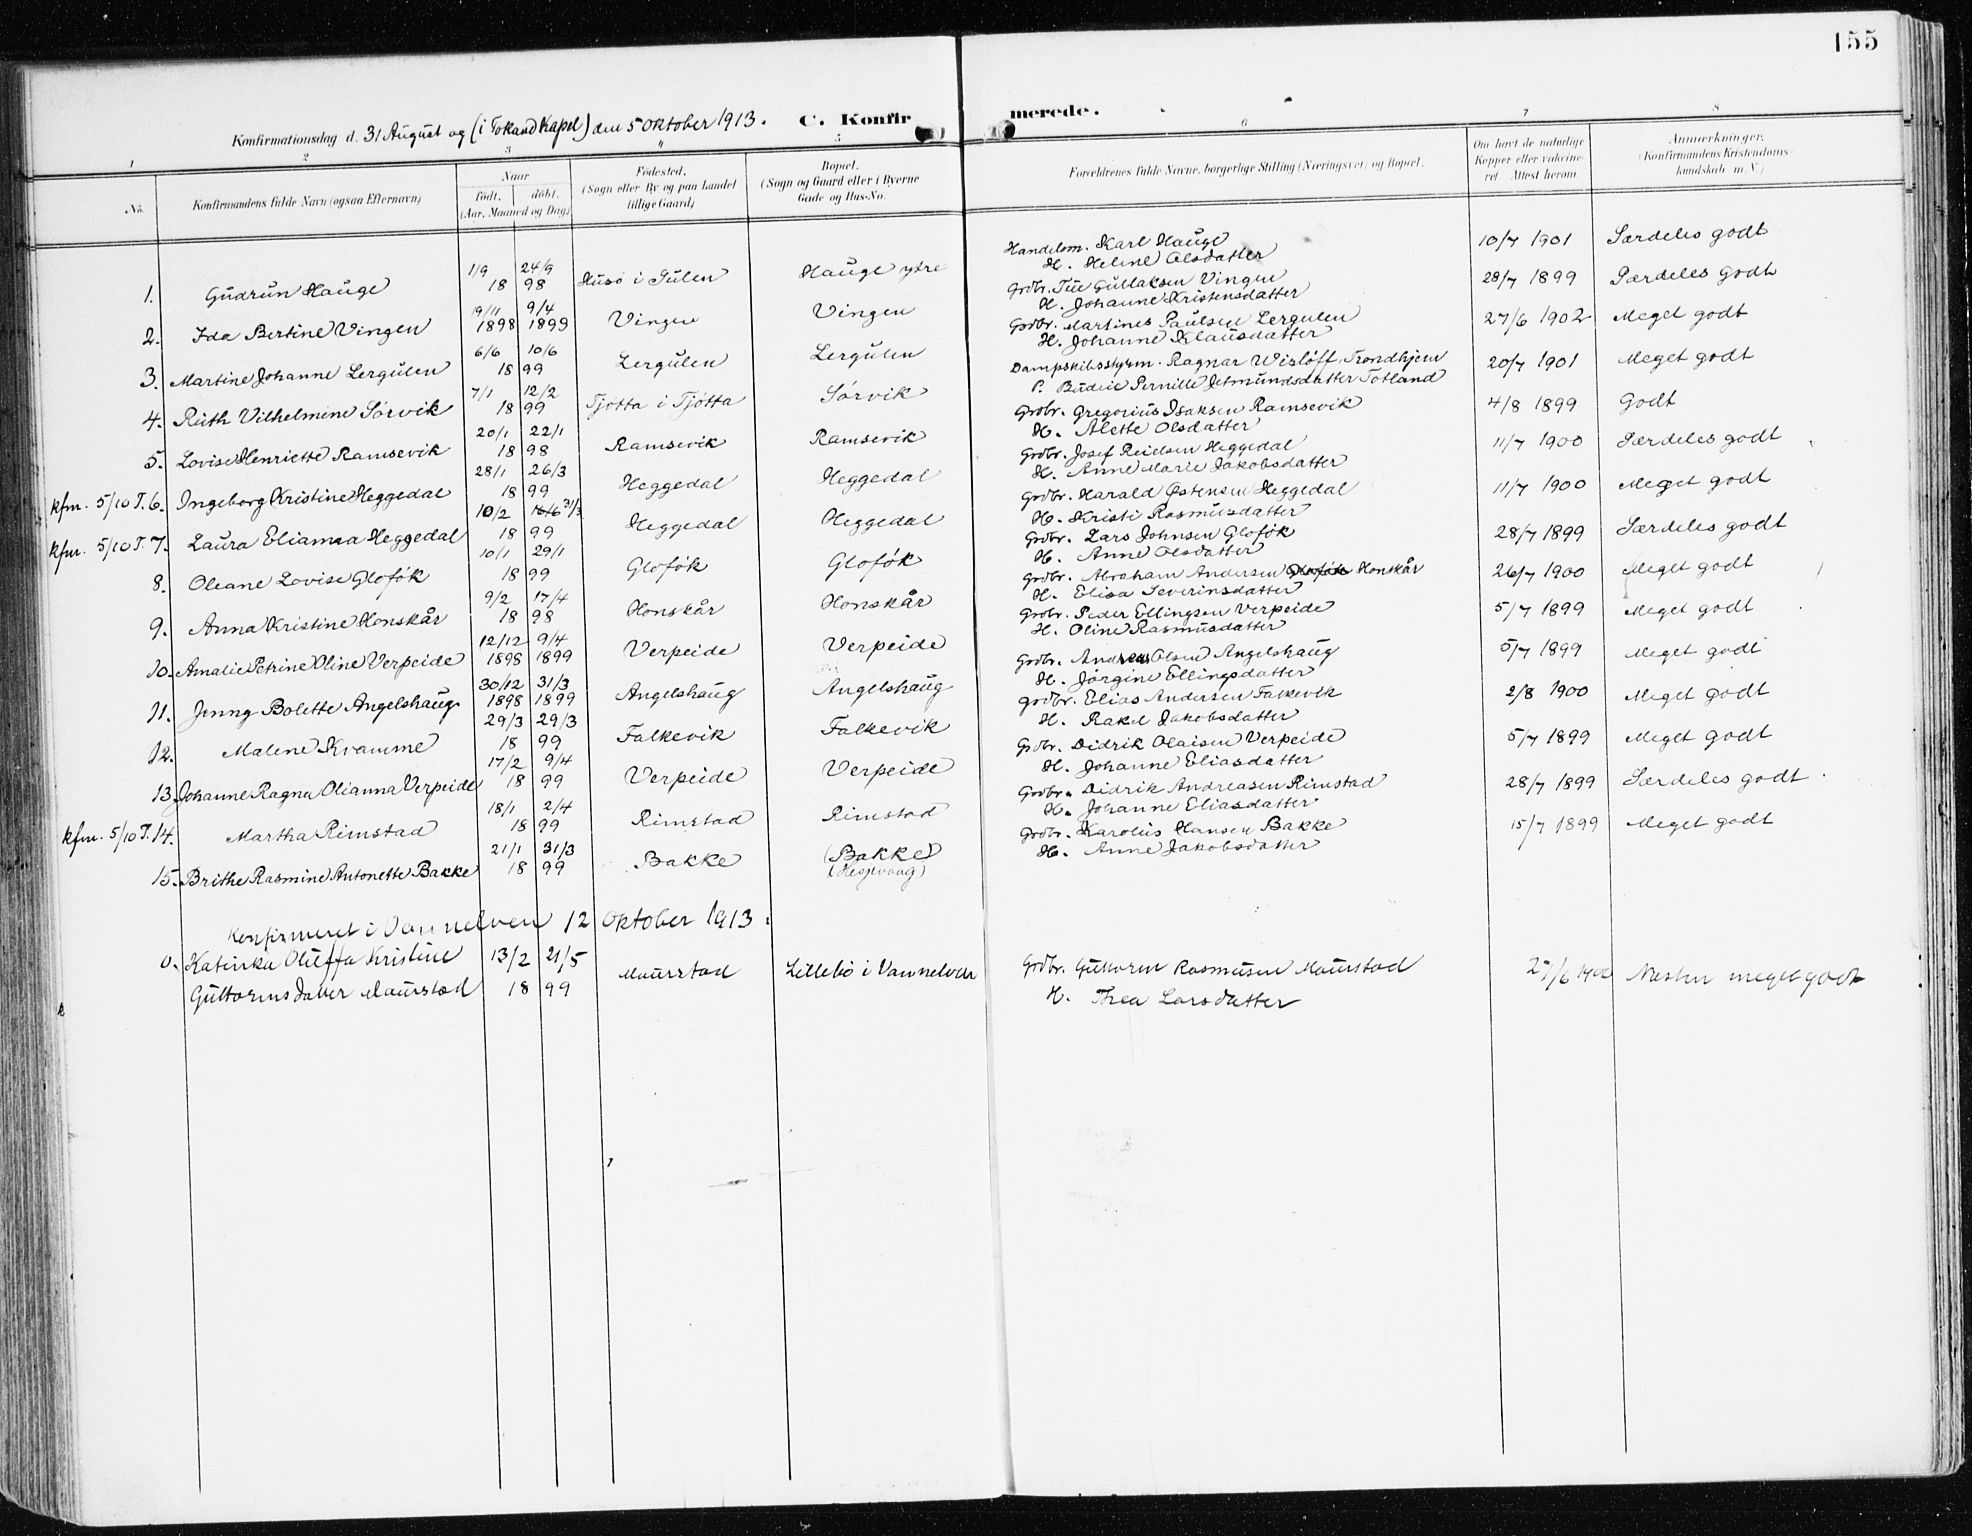 155
Konfirmationsdag d. 31 August og (i Totland Kapel) den 5 Oktober 1913. C. Konfirmerede.
1 2 3 4 5 6 7 8
No. Konfirmandens fulde Navn (ogsaa Efternavn) Naar født, døbt. (Aar, Maaned og Dag) Fødested. (Sogn eller By og paa Landet tillige Gaard) Bopæl. (Sogn og Gaard eller i Byerne Gade og Hus-No. Forældrenes fulde Navne, borgerlige Stilling (Næringsvei) og Bopæl. Om havt de naturlige Kopper eller vakcineret. Attest herom. Anmærkninger. (Konfirmandens Kristendomskundskab m. V.)
1. Gudrun Hauge 1/9 1898 24/9 98 Husø i Sulen Hauge ytre Handelsm. Karl Hauge 10/7 1901 Særdeles godt
H. Heline Olsdatter
2. Ida Bertine Vingen 19/11 1898 9/4 1899 Vingen Vingen Grdbr. Tue Gullaksen Vingen 28/7 1899 Særdeles godt
H. Johanne Kristensdatter
3. Martine Johanne Lergulen 6/6 18 10/6 99 Lergulen Lergulen Grdbr. Martines Paulsen Lergulen 27/6 1902 Meget godt
H. Johanne Klausdatter
4. Ruth Vilhelmine Sørvik 7/1 18 12/2 99 Tjøtta i Tjøtta Sørvik Dampskibsstyrm. Ragnar Wisløff, Trondhjem 20/7 1901 Meget godt
P. Budeie Pernille Jetmundsdatter Totland
5. Lovise Henriette Ramsevik 20/1 18 22/1 98 Ramsevik Ramsevik Grdbr. Gregorius Isaksen Ramsevik 4/8 1899 Godt
H. Alette Olsdatter
kfm. 5/10 T. 6. Ingeborg Kristine Heggedal 28/1 18 26/3 99 Heggedal Heggedal Grdbr. Josef Reielsen Heggedal 11/7 1900 Særdeles godt
H. Anne Marie Jakobsdatter
kfm. 5/10 T. 7. Laura Elianna Heggedal 10/2 18 31/3 99 Heggedal Heggedal Grdbr. Harald Østensen Heggedal 11/7 1900 Meget godt
H. Kristi Rasmusdatter
8. Oleane Lovise Gloføk 10/1 18 29/1 99 Gloføk Gloføk Grdbr. Lars Johnsen Gloføk 28/7 1899 Særdeles godt
H. Anne Olsdatter
9. Anna Kristine Honskår 9/2 18 17/4 98 Honskår Honskår Grdbr. Abraham Andersen Gloføk Honskår 26/7 1900 Meget godt
H. Elisa Severinsdatter
10. Amalie Petrine Oline Verpeide 12/12 1898 9/4 1899 Verpeide Verpeide Grdbr. Peder Ellingsen Verpeide 5/7 1899 Meget godt
H. Oline Rasmusdatter
11. Jenny Bolette Angelshaug 30/12 1898 31/3 1899 Angelshaug Angelshaug Grdbr. Andreas Olsen Angelshaug 5/7 1899 Meget godt
H. Jørgine Ellingsdatter
12. Malene Kvamme 29/3 18 29/3 99 Falkevik Falkevik Grdbr. Elias Andersen Falkevik 2/8 1900 Meget godt
H. Rakel Jakobsdatter
13. Johanne Ragna Olianna Verpeide 17/2 18 9/4 99 Verpeide Verpeide Grdbr. Didrik Olaisen Verpeide 5/7 1899 Meget godt
H. Johanne Eliasdatter
kfm. 5/10 T. 14. Martha Rimstad 18/1 18 2/4 99 Rimstad Rimstad Grdbr. Didrik Andreasen Rimstad 28/7 1899 Særdeles godt
H. Johanne Eliasdatter
15. Brithe Rasmine Antonette Bakke 21/1 18 31/3 99 Bakke (Bakke) Grdbr. Karolus Hansen Bakke 15/7 1899 Meget godt
H. Anne Jakobsdatter
Konfirmeret i Vannelven 12 Oktober 1913:
0. Katinka Oluffa Kristine 13/2 21/5 Maurstad Lillebø i Vannelven Grdbr. Guttorm Rasmusen Maurstad 27/6 1900 Næsten meget godt
Guttormsdatter Maurstad 18 99 H. Thea Larsdatter